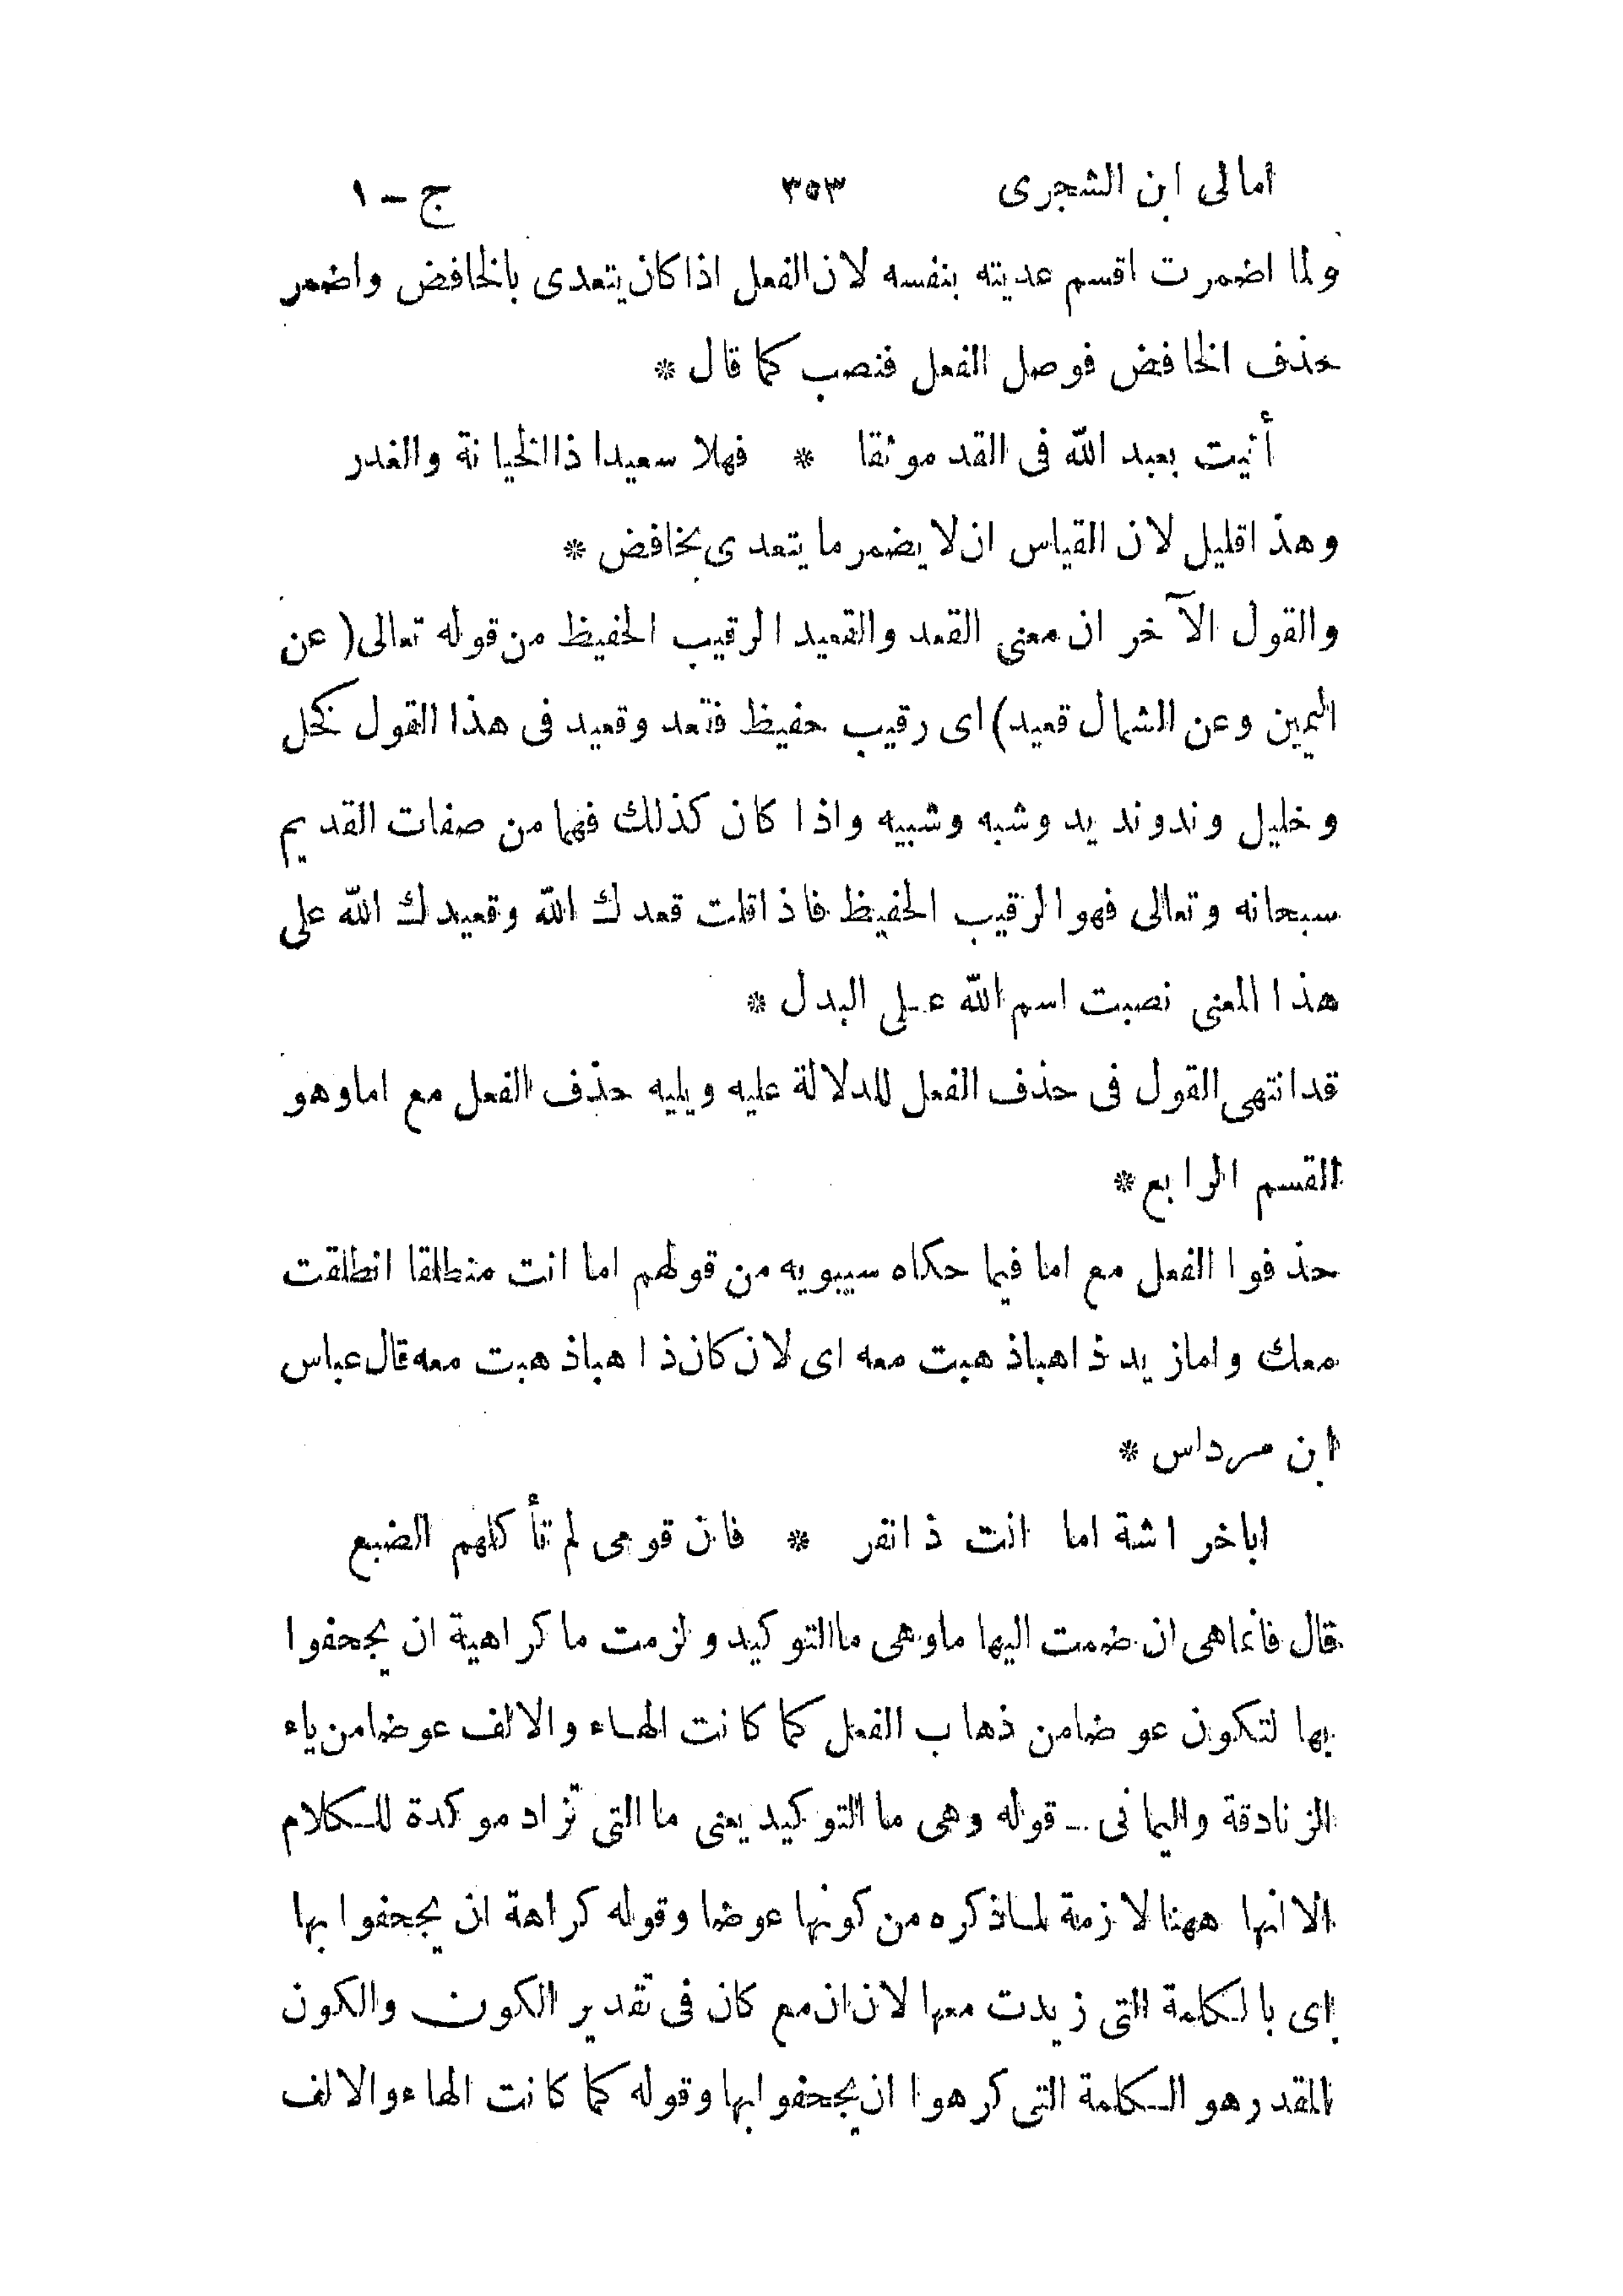 امالى ابن الشجرى ٣٥٣ ج - ١
ولما اضمرت اقسم عديته بنفسه لان الفعل اذا كان يتعدى بالخافض واضمر
حذف الخافض فوصل الفعل فنصب كما قال *
أتيت بعبد الله فى القد موثقا * فهلا سعيدا ذا الخيانة والغدر
وهذا قليل لان القياس ان لا يضمر ما يتعدى بخافض *
والقول الآخر ان معنى القعد والقعيد الرقيب الحفيظ من قوله تعالى (عن
اليمين وعن الشمال قعيد) اى رقيب حفيظ فقعد وقعيد فى هذا القول كخل
وخليل وند ونديد وشبه وشبيه واذا كان كذلك فهما من صفات القديم
سبحانه وتعالى فهو الرقيب الحفيظ فاذا قلت قعدك الله وقعيدك الله على
هذا المعنى نصبت اسم الله على البدل *
قد انتهى القول فى حذف الفعل للدلالة عليه ويليه حذف الفعل مع اما وهو
القسم الرابع *
حذفوا الفعل مع اما فيما حكاه سيبويه من قولهم اما انت منطلقا انطلقت
معك واما زيد ذاهبا ذهبت معه اى لان كان ذاهبا ذهبت معه قال عباس
ابن مرداس *
ابا خراشة اما انت ذا نفر * فان قومى لم تأكلهم الضبع
قال فانما هى ان ضمت اليها ما وهى ما التوكيد ولزمت ما كراهية ان يجحفوا
بها لتكون عوضا من ذهاب الفعل كما كانت الهاء والالف عوضا من ياء
الزنادقة واليمانى - قوله وهى ما التوكيد يعنى ما التى تزاد موكدة للكلام
الا انها ههنا لازمة لما ذكره من كونها عوضا وقوله كراهة ان يجحفوا بها
اى بالكلمة التى زيدت معها لان ان مع كان فى تقدير الكون والكون
المقدر هو الكلمة التى كرهوا ان يجحفوا بها وقوله كما كانت الهاء والالف